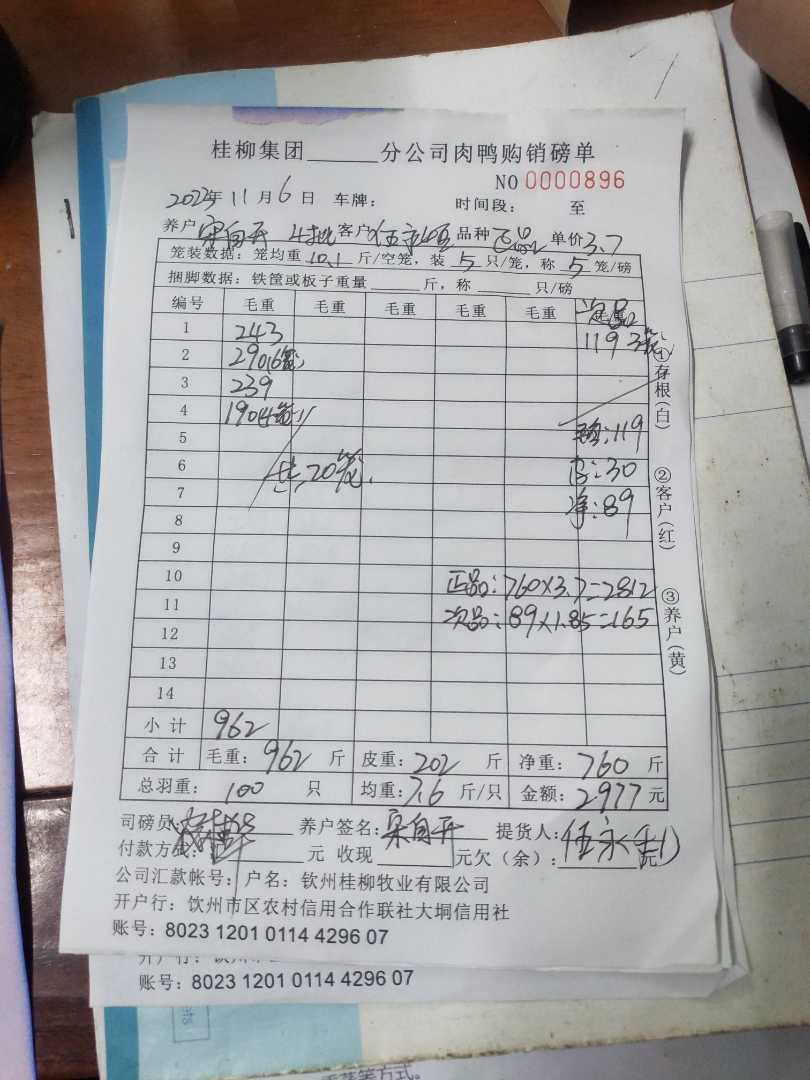 桂柳集团______分公司肉鸭购销磅单
NO 0000896
2022年11月6日 车牌: 时间段: 至
养户 自开 4批 客户 伍永 品种 正品 单价 3.7
笼装数据: 笼均重 10.1 斤/空笼, 装 5 只/笼, 称 5 笼/磅
捆脚数据: 铁筐或板子重量______斤, 称______只/磅
编号 毛重 毛重 毛重 毛重 毛重 次品
1 243 119 3笼
2 290(6笼)
3 239
4 190(4笼)
5 毛:119
6 共20笼. 皮:30
7 净:89
8
9
10 正品:760×3.7=2812
11 次品:89×1.85=165
12
13
14
小计 962
合计 毛重: 962 斤 皮重: 202 斤 净重: 760 斤
总羽重: 100 只 均重: 7.6 斤/只 金额: 2977 元
司磅员: 养户签名: 自开 提货人: 伍永
付款方式: 元 收现______元欠(余):______元
公司汇款帐号: 户名: 钦州桂柳牧业有限公司
开户行: 钦州市区农村信用合作联社大垌信用社
账号: 8023 1201 0114 4296 07
①存根(白)
②客户(红)
③养户(黄)
账号: 8023 1201 0114 4296 07